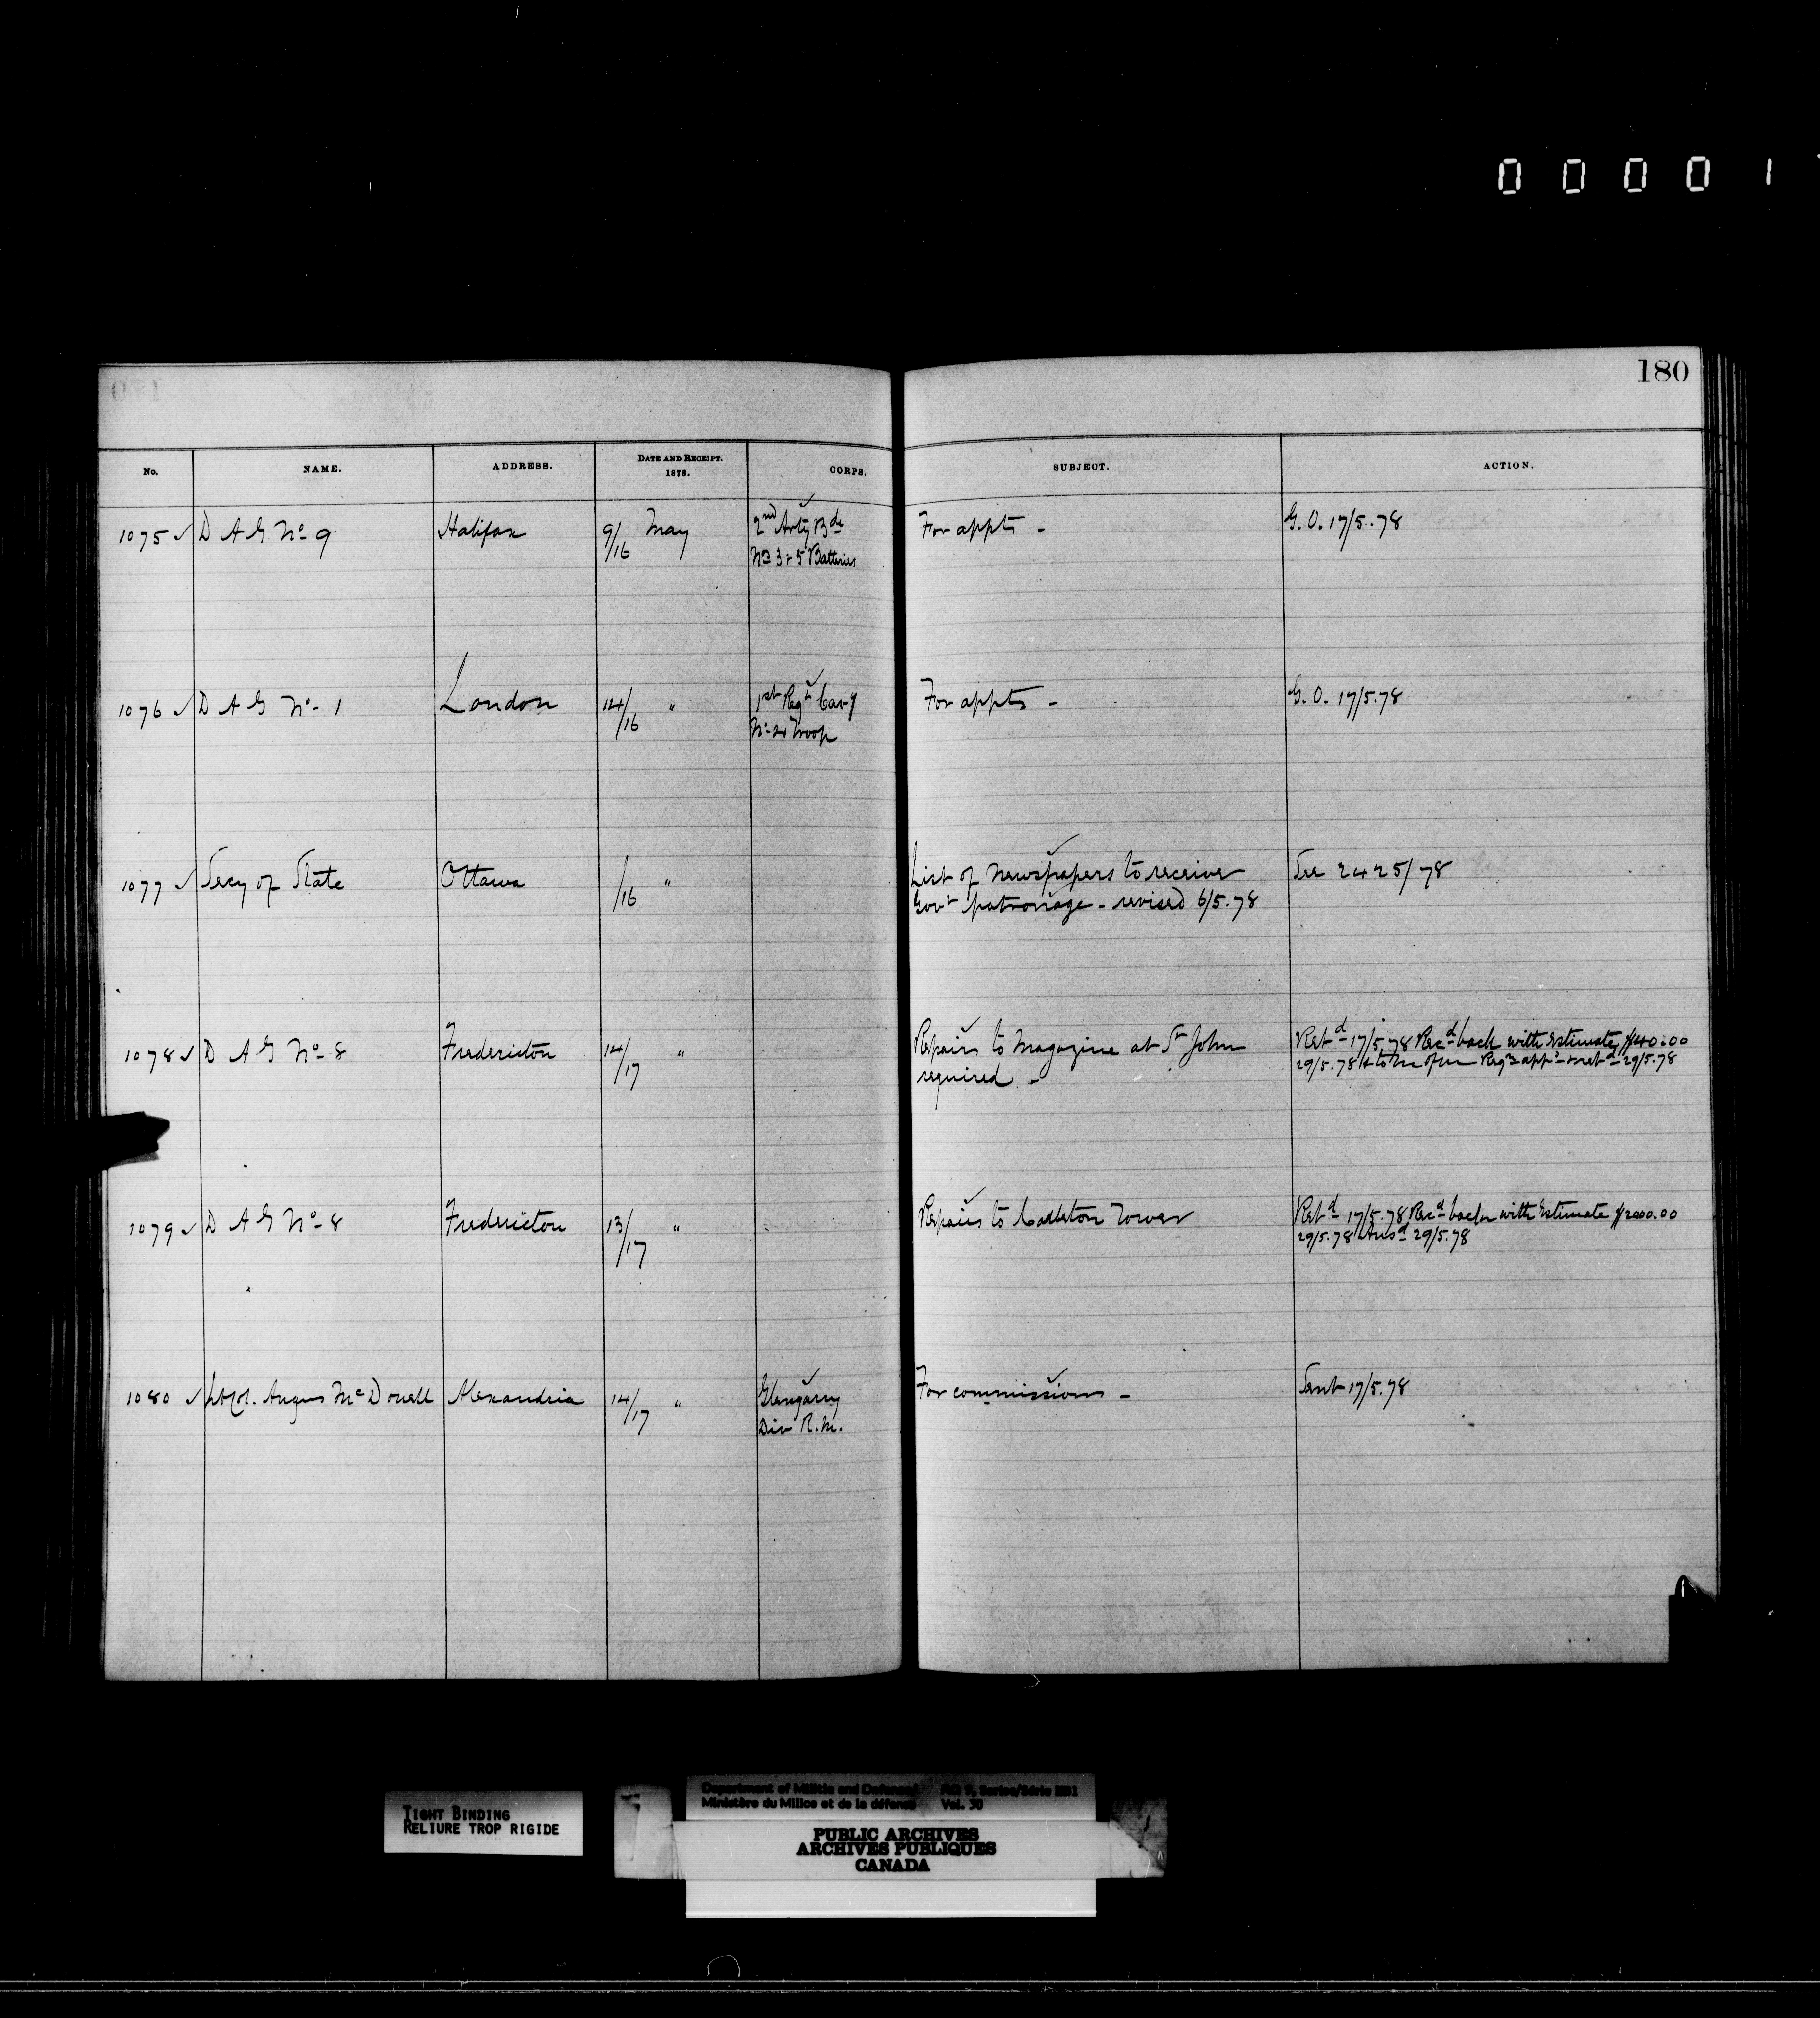 0 0 0 0 1
180
No. NAME. ADDRESS. DATE AND RECEIPT. 1878. CORPS. SUBJECT. ACTION.
1075 ✓ D A G No. 9 Halifax 9/16 May 2nd Arty Bde For appts - G. O. 17/5.78
Nos 3 & 5 Batteries
1076 ✓ D A G No. 1 London 14/16 " 1st Regt Cavy For appts - G. O. 17/5.78
No. 4 Troop
1077 ✓ Secy of State Ottawa /16 " List of Newspapers to receive See 2425/78
Govt patronage - revised 6/5.78
1078 ✓ D A G No. 8 Fredericton 14/17 " Repairs to Magazine at St John Retd 17/5.78 Recd back with Estimate $40.00
required - 29/5.78 & to Regn appd & retd 29/5.78
1079 ✓ D A G No. 8 Fredericton 13/17 " Repairs to Carleton Tower Retd 17/5.78 Recd back with Estimate $2000.00
29/5.78 Ansd 29/5.78
1080 ✓ Lt Col. Angus McDonell Alexandria 14/17 " Glengarry For commissions - Sent 17/5.78
Div R.M.
TIGHT BINDING
RELIURE TROP RIGIDE
Department of Militia and Defence/ RG 9, Series/Série IIB1
Ministère du Milice et de la défense Vol. 30
PUBLIC ARCHIVES
ARCHIVES PUBLIQUES
CANADA